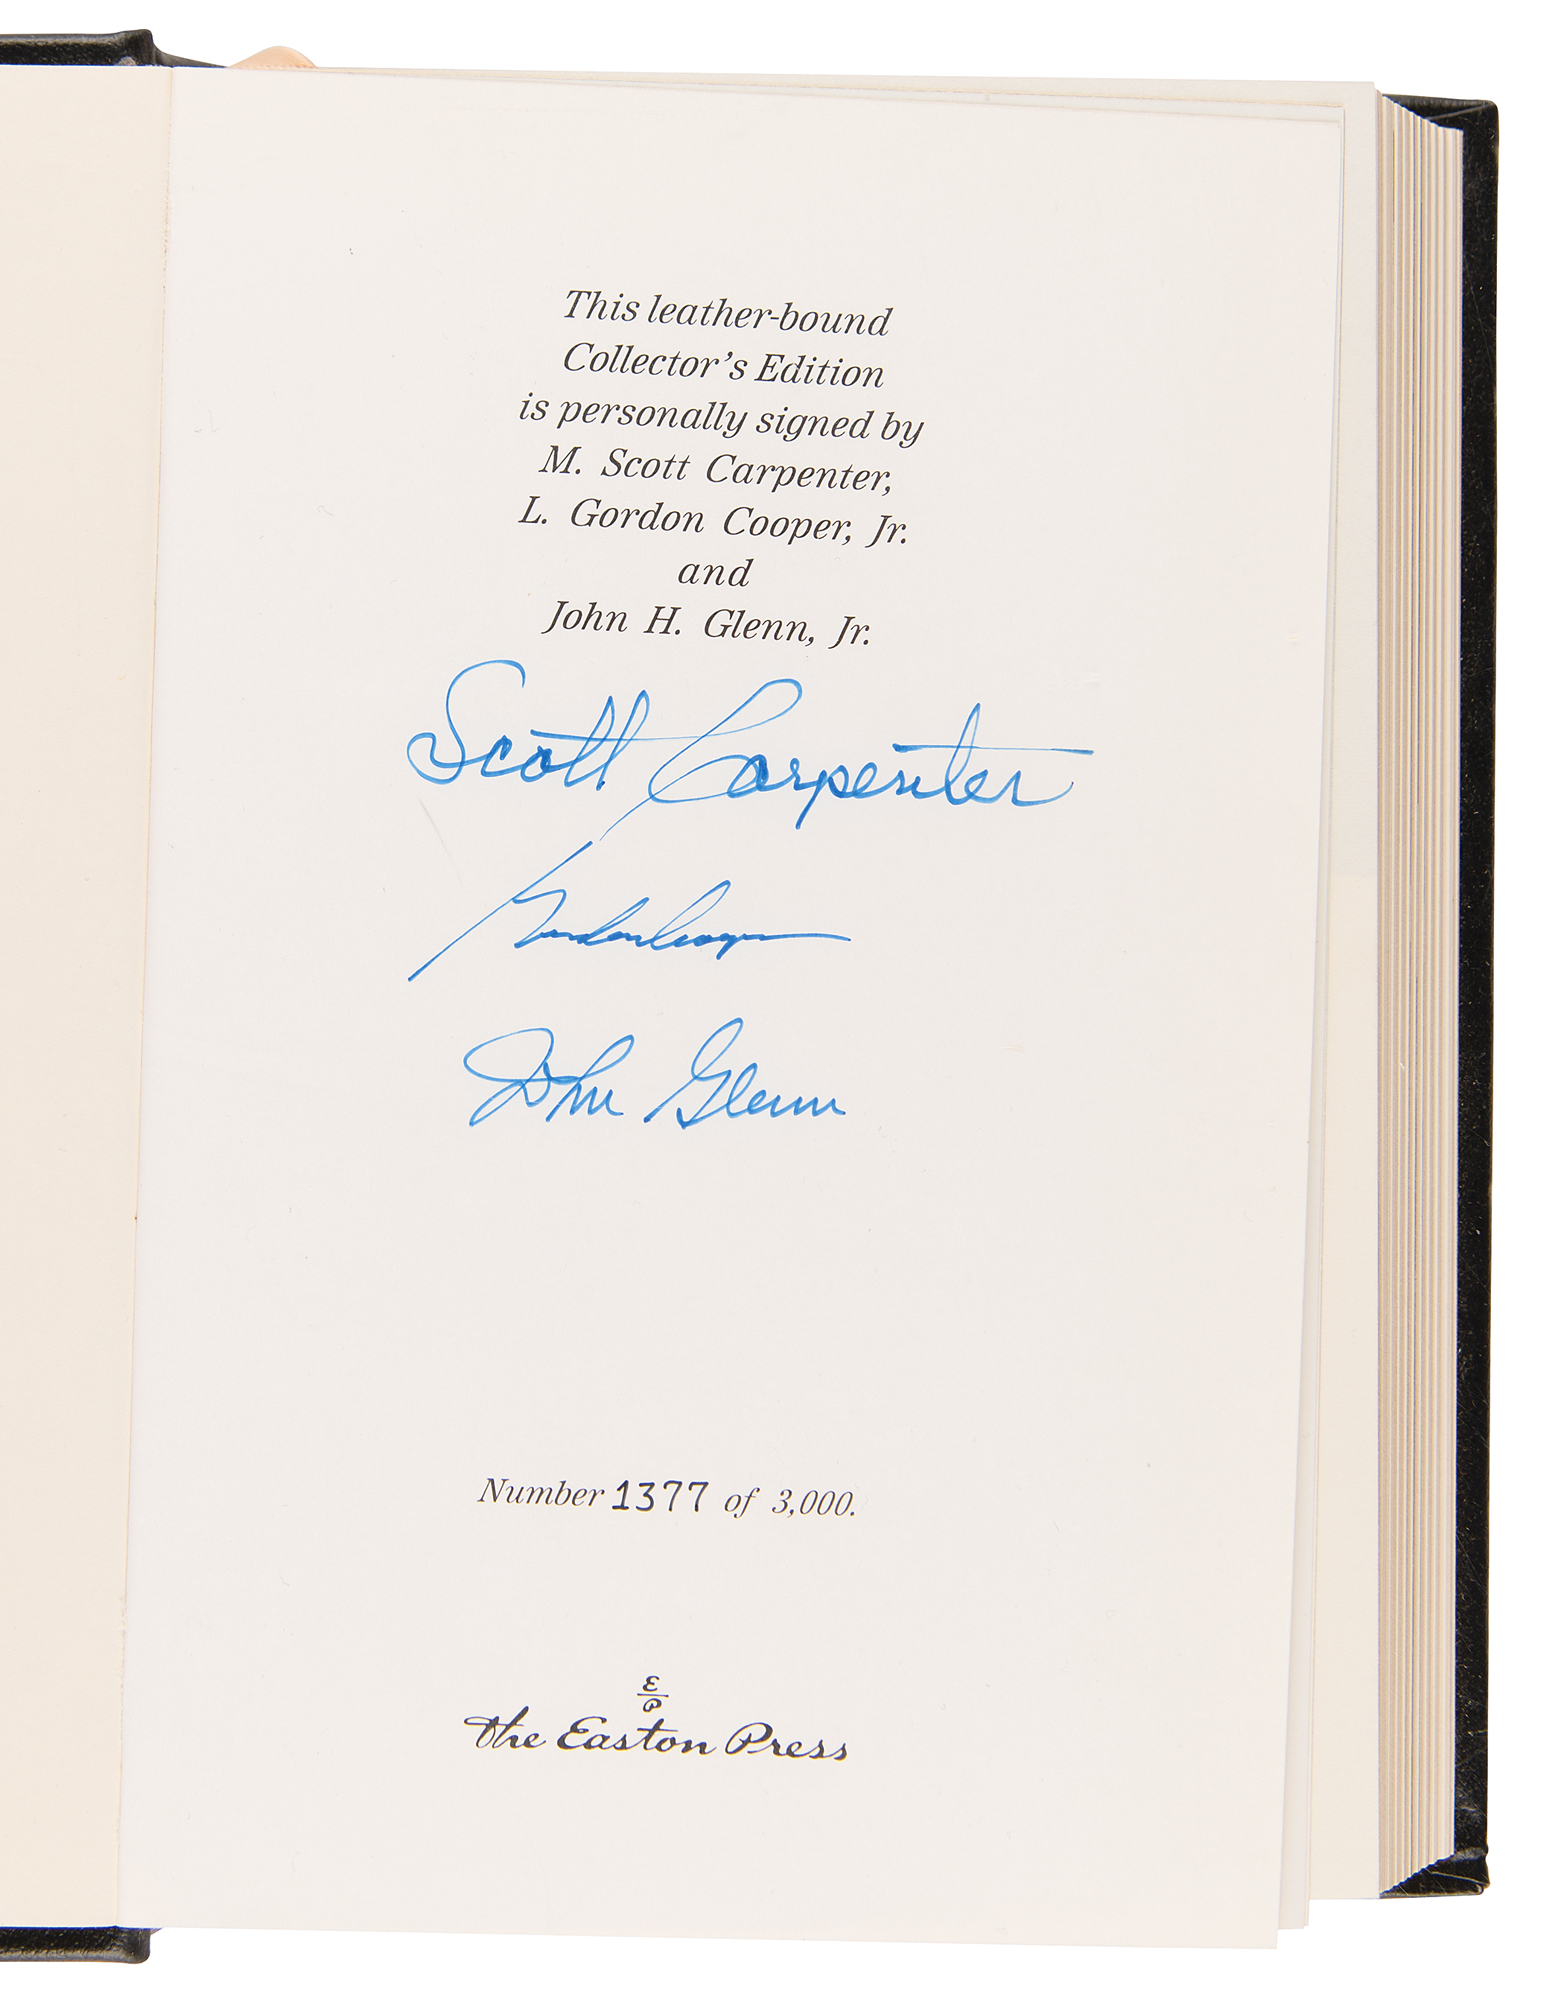 This leather-bound
Collector's Edition
is personally signed by
M. Scott Carpenter,
L. Gordon Cooper, Jr.
and
John H. Glenn, Jr.
Scott Carpenter
Gordon Cooper
John Glenn
Number 1377 of 3,000.
E
P
The Easton Press